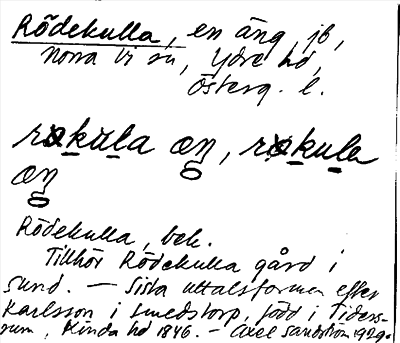 Rödekulla, en äng, jb,
Norra Vi sn, Ydre hd,
Österg. l.
rökula æŋ, rökula
æŋ
Rödekulla, bek.
Tillhör Rödekulla gård i
Sund. — Sista uttalsformen efter
Karlsson i Smedstorp, född i Tiders-
rum, Kinda hd 1846. — Axel Sandström 1929.